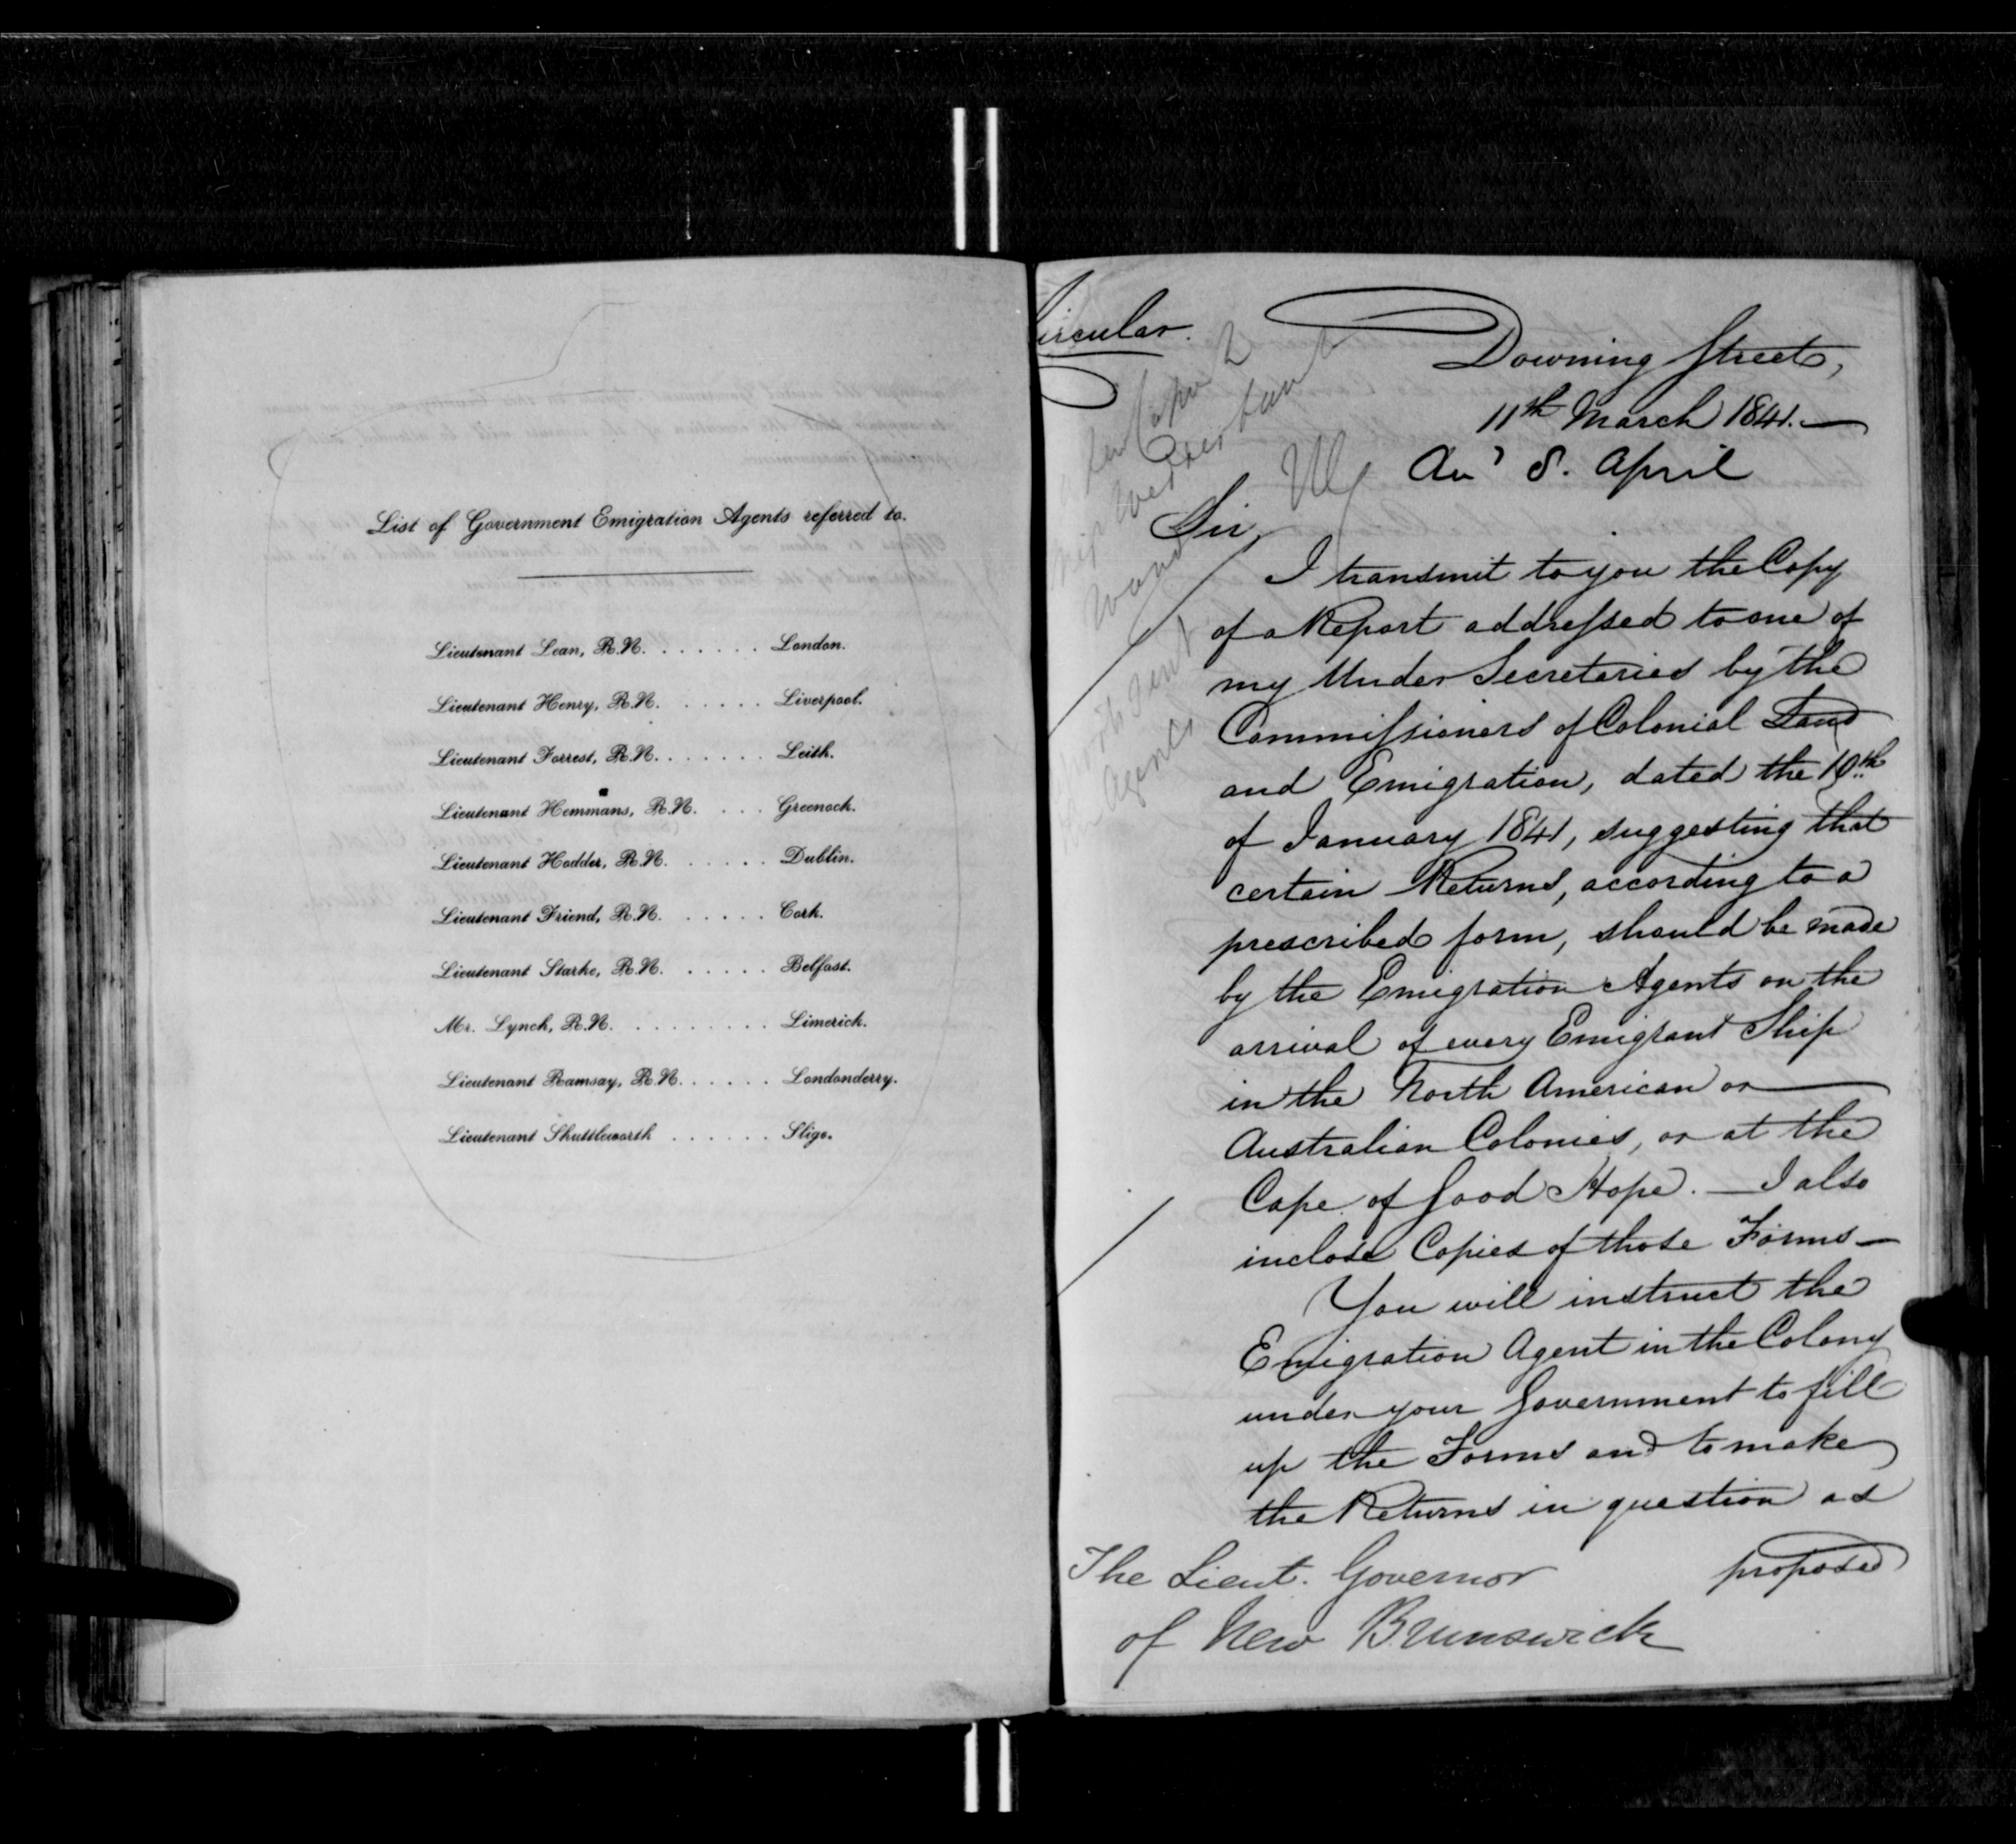 List of Government Emigration Agents referred to.
Lieutenant Lean, R.N. . . . . . . London.
Lieutenant Henry, R.N. . . . . . Liverpool.
Lieutenant Forrest, R.N. . . . . . . Leith.
Lieutenant Hemmans, R.N. . . . Greenock.
Lieutenant Hodder, R.N. . . . . . Dublin.
Lieutenant Friend, R.N. . . . . . Cork.
Lieutenant Starke, R.N. . . . . . Belfast.
Mr. Lynch, R.N. . . . . . . . . Limerick.
Lieutenant Ramsay, R.N. . . . . . Londonderry.
Lieutenant Shuttleworth . . . . . . Sligo.
Circular.
Downing Street,
11th March 1841.—
An^d 8. April
Sir,
I transmit to you the Copy
of a Report addressed to one of
my Under Secretaries by the
Commissioners of Colonial Land
and Emigration, dated the 19th
of January 1841, suggesting that
certain Returns, according to a
prescribed form, should be made
by the Emigration Agents on the
arrival of every Emigrant Ship
in the North American or
Australian Colonies, or at the
Cape of Good Hope. — I also
inclose Copies of those Forms —
You will instruct the
Emigration Agent in the Colony
under your Government to fill
up the Forms and to make
the Returns in question as
proposed
The Lieut. Governor
of New Brunswick